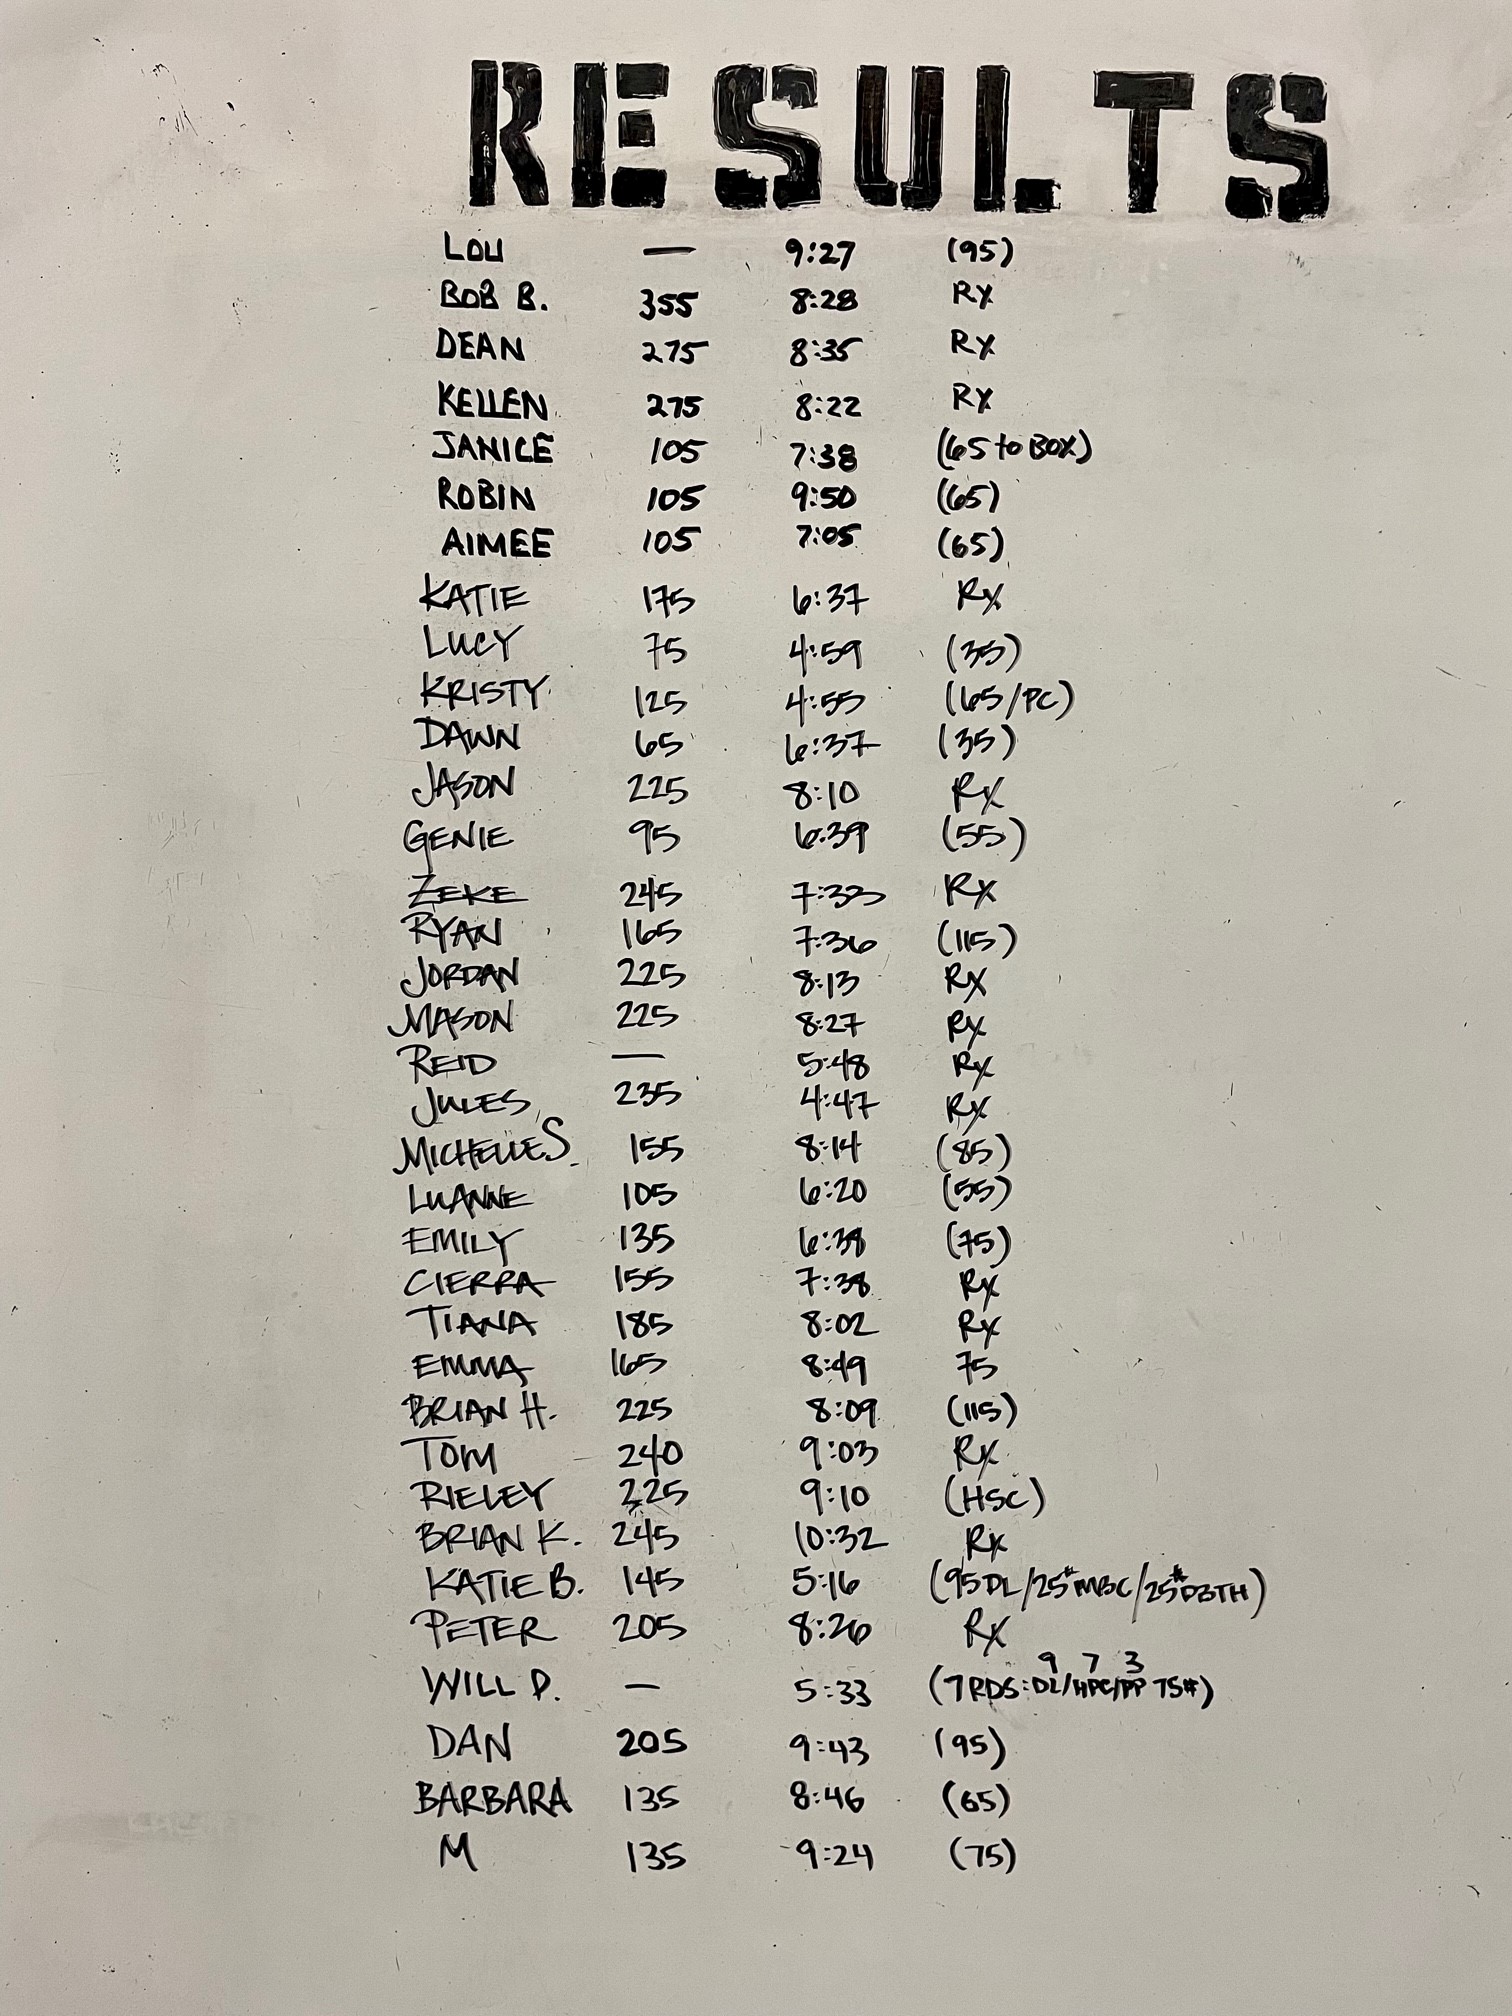 RESULTS
LOU — 9:27 (95)
BOB B. 355 8:28 Rx
DEAN 275 8:35 Rx
KELLEN 275 8:22 Rx
JANICE 105 7:38 (65 to BOX)
ROBIN 105 9:50 (65)
AIMEE 105 7:05 (65)
KATIE 175 6:37 Rx
LUCY 75 4:59 (35)
KRISTY 125 4:55 (65/PC)
DAWN 65 6:37 (35)
JASON 225 8:10 Rx
GENIE 95 6:39 (55)
ZEKE 245 7:33 Rx
RYAN 165 7:36 (115)
JORDAN 225 8:13 Rx
MASON 225 8:27 Rx
REID — 5:48 Rx
JULES 235 4:47 Rx
MICHELLE S. 155 8:14 (85)
LUANNE 105 6:20 (55)
EMILY 135 6:38 (75)
CIERRA 155 7:38 Rx
TIANA 185 8:02 Rx
EMMA 165 8:49 75
BRIAN H. 225 8:09 (115)
TOM 240 9:03 Rx
RIELEY 225 9:10 (HSC)
BRIAN K. 245 10:32 Rx
KATIE B. 145 5:16 (95DL/25# MBC/25# DBTH)
PETER 205 8:26 Rx
9 7 3
WILL D. — 5:33 (7RDS: DL/HPC/PP 75#)
DAN 205 9:43 (95)
BARBARA 135 8:46 (65)
M 135 9:24 (75)